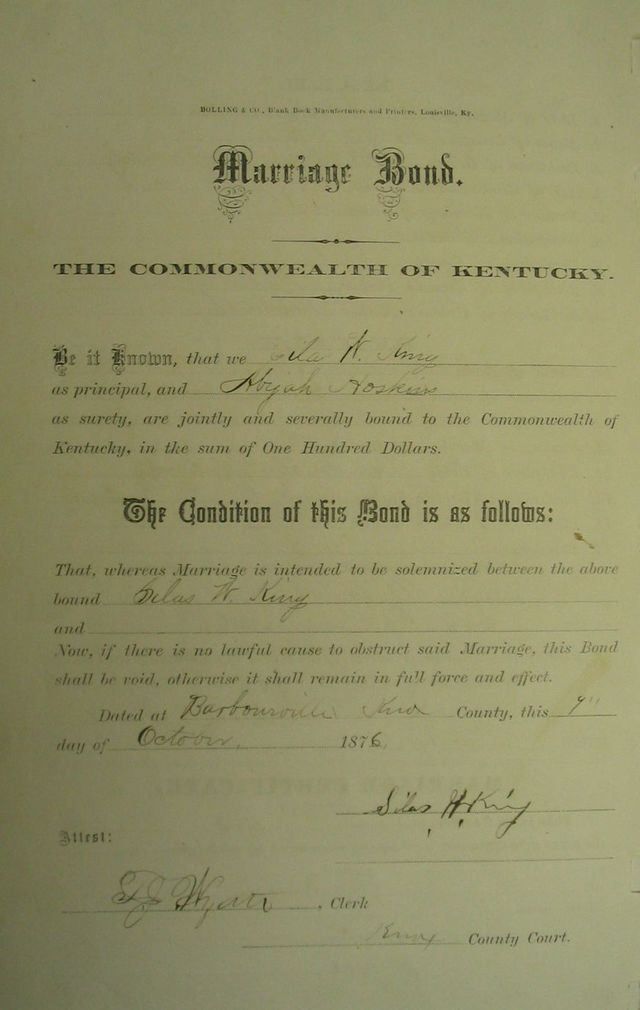 BOLLING & CO., Blank Book Manufacturers and Printers, Louisville, Ky.
Marriage Bond.
THE COMMONWEALTH OF KENTUCKY.
Be it Known, that we Silas W. King
as principal, and Abijah Hoskins
as surety, are jointly and severally bound to the Commonwealth of
Kentucky, in the sum of One Hundred Dollars.
The Condition of this Bond is as follows:
That, whereas Marriage is intended to be solemnized between the above
bound Silas W. King
and
Now, if there is no lawful cause to obstruct said Marriage, this Bond
shall be void, otherwise it shall remain in full force and effect.
Dated at Barbourville Knox County, this
day of October, 1876
Silas W. King
Attest:
Wyatt, Clerk
Knox County Court.